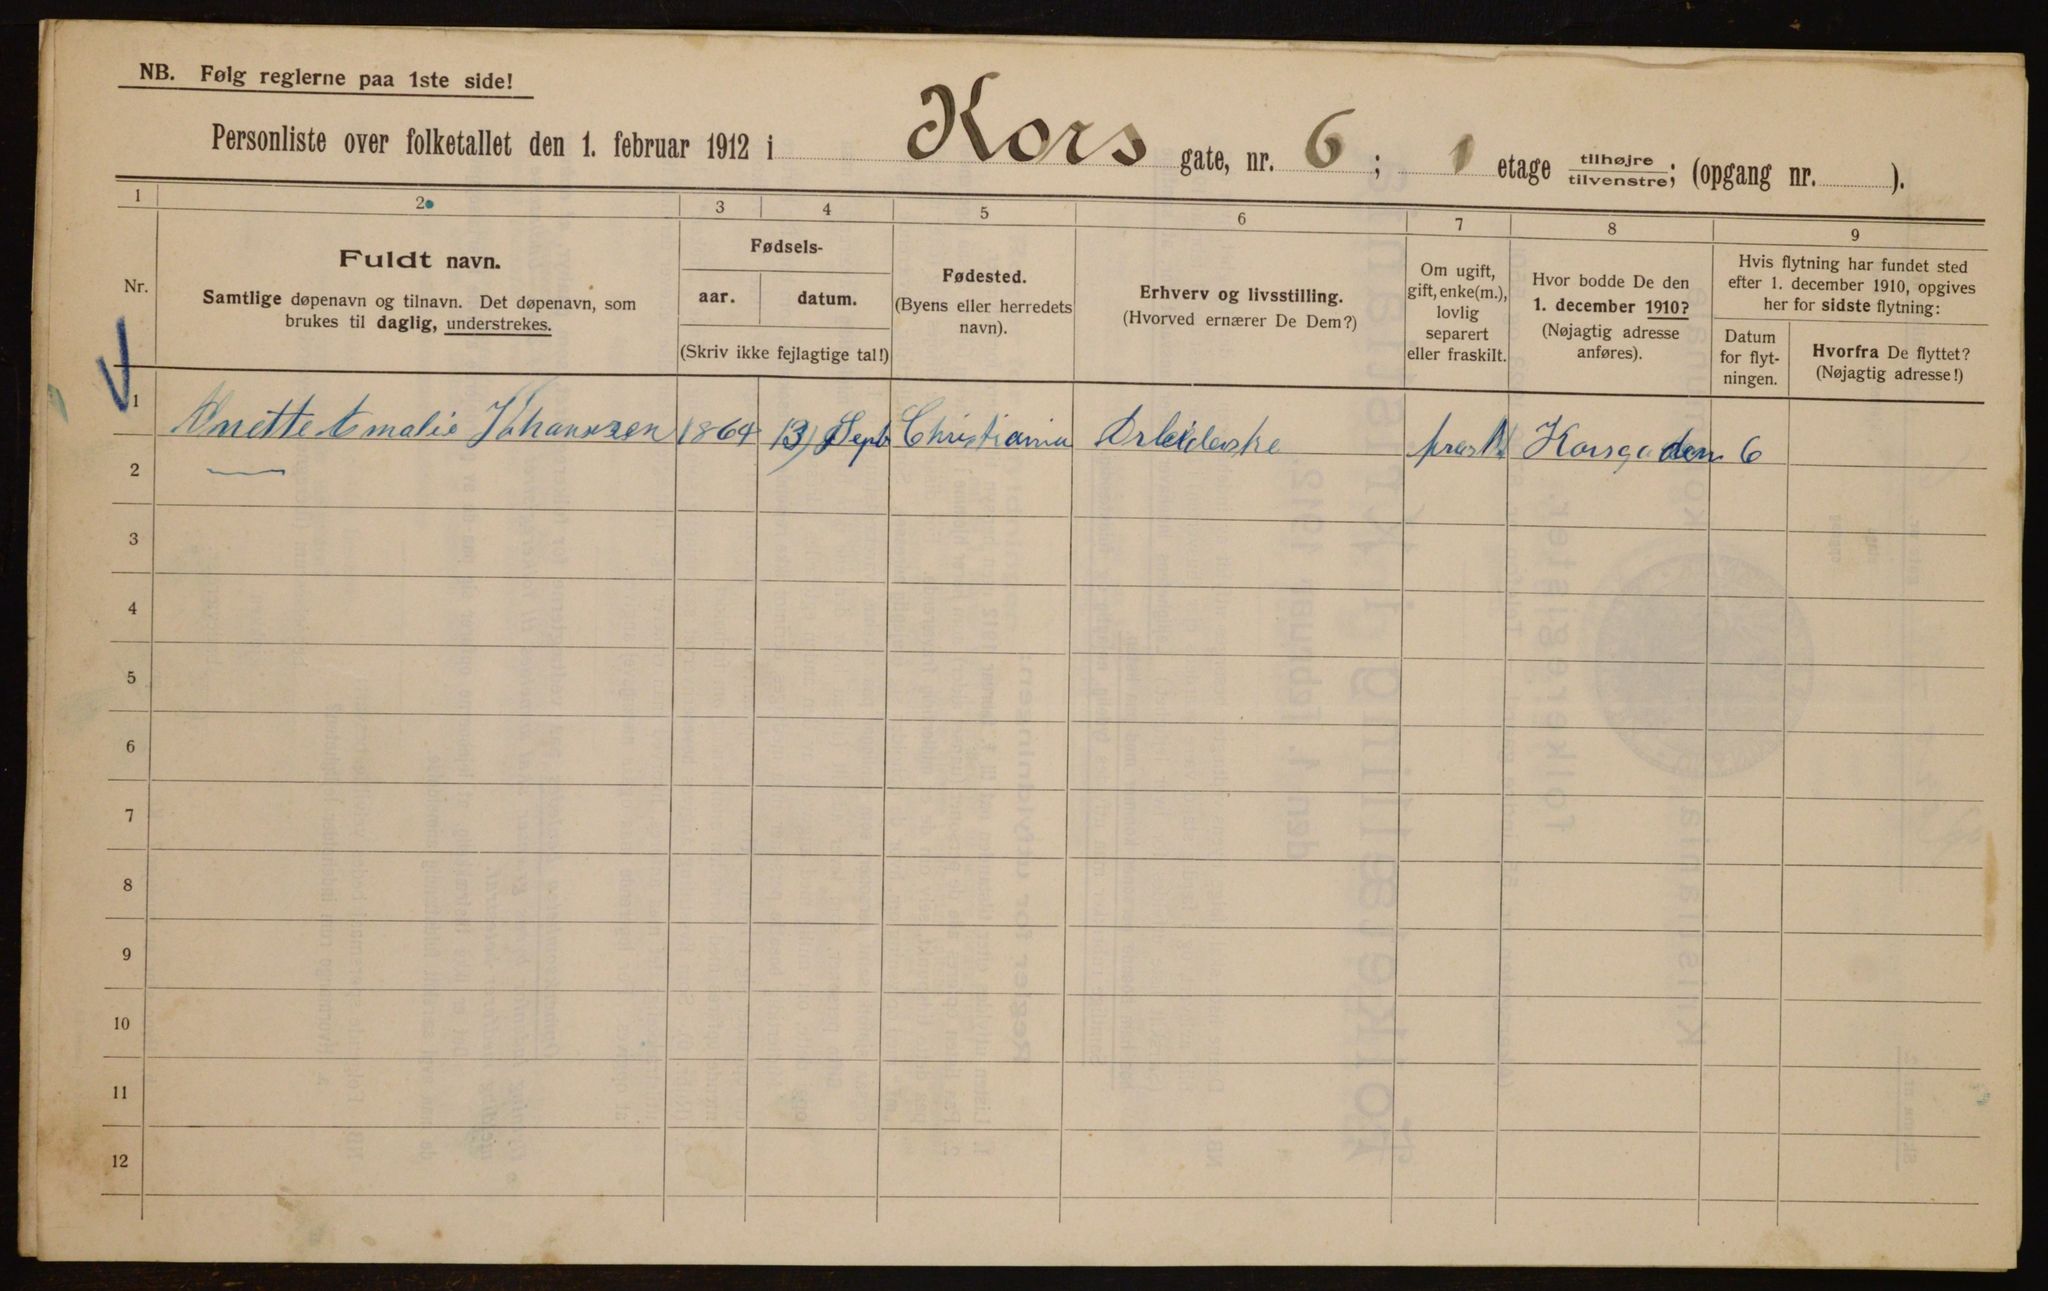 NB. Følg reglerne paa 1ste side!
Personliste over folketallet den 1. februar 1912 i Kors gate, nr. 6 ; 1 etage tilhøjre tilvenstre ; (opgang nr. ).
1 2 3 4 5 6 7 8 9
Nr.
Fuldt navn.
Samtlige døpenavn og tilnavn. Det døpenavn, som
brukes til daglig, understrekes.
Fødsels-
aar. datum.
(Skriv ikke fejlagtige tal!)
Fødested.
(Byens eller herredets
navn).
Erhverv og livsstilling.
(Hvorved ernærer De Dem?)
Om ugift,
gift, enke(m.),
lovlig
separert
eller fraskilt.
Hvor bodde De den
1. december 1910?
(Nøjagtig adresse
anføres).
Hvis flytning har fundet sted
efter 1. december 1910, opgives
her for sidste flytning:
Datum
for flyt-
ningen.
Hvorfra De flyttet?
(Nøjagtig adresse!)
1 Anette Amalie Johanssen 1864 13 Sept Christiania Korsgaden 6
2
3
4
5
6
7
8
9
10
11
12